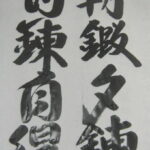 朝鍛夕錬
錬自得